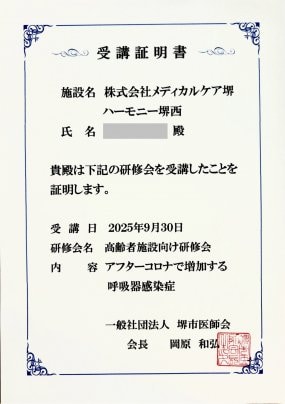 受講証明書
施設名 株式会社メディカルケア堺
ハーモニー堺西
氏名 殿
貴殿は下記の研修会を受講したことを
証明します。
受講日 2025年9月30日
研修会名 高齢者施設向け研修会
内容 アフターコロナで増加する
呼吸器感染症
一般社団法人 堺市医師会
会長 岡原 和弘